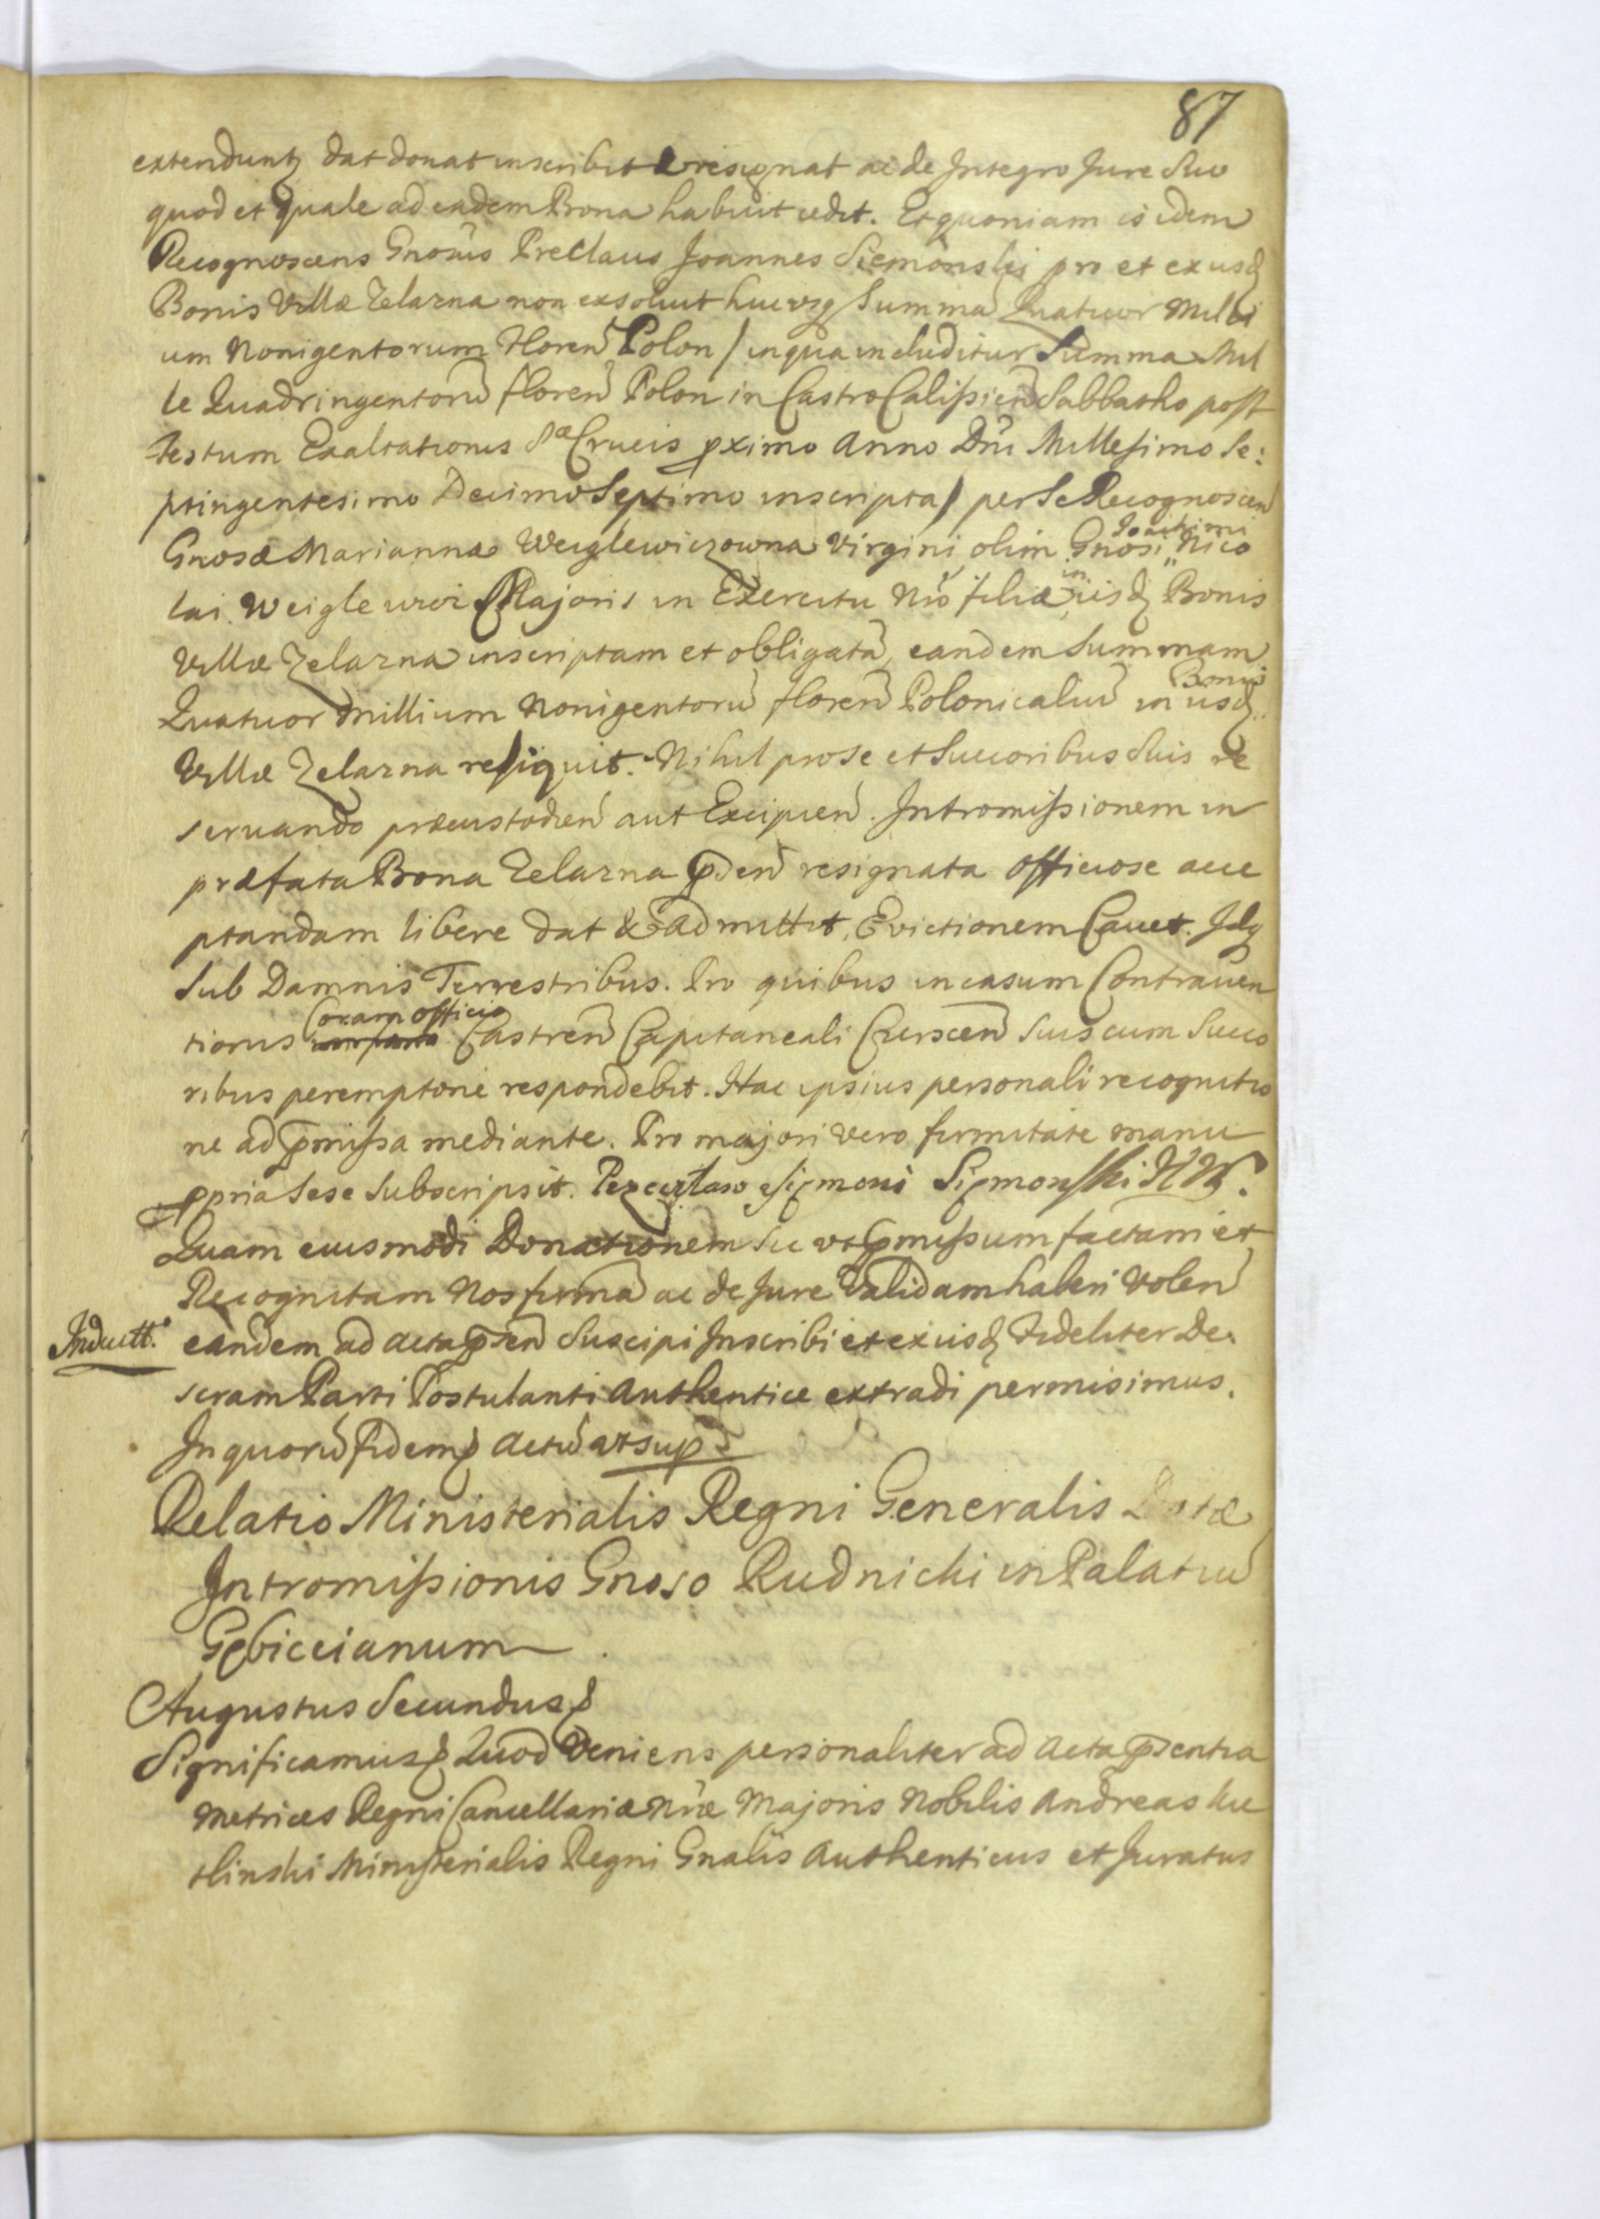 87
extendunt dat donat inscribit & resignat ac de Integro Jure Suo
quod et quale ad eadem Bona habuit cedit. Et quoniam is idem
Recognoscens Gnosus Preclaus Joannes Siemonski pro et ex iisd
Bonis Villæ Zelazna non exsoluit hucusq Summã Quatuor Milli
um Nonigentorum Floren̄ Polon / in qua includitur Summa Mil
le Quadringentorũ floren̄ Polon in Castro Calissien̄ Sabbatho post
Festum Exaltationis Sæ Crucis pximo Anno Dni Millesimo Se:
ptingentesimo Decimo Septimo inscripta / per Se Recognoscen̄
Gnosæ Mariannæ Weiglewiczowna Virgini olim Gnosi Joachimi Nico
lai Weiglewicz Majoris in Exercitu Nro filiæ in iisd Bonis
Villæ Zelazna inscriptam et obligatã, eandem Summam
Quatuor Millium Nonigentorũ floren̄ Polonicaliũ in iisd Bonis
Villæ Zelazna reliquit. Nihil pro Se et Succoribus Suis re
seruando præcustodien̄ aut Excipien̄. Intromissionem in
præfata Bona Zelazna pden̄ resignata officiose acce
ptandam libere dat & admittit, Evictionem Cauet. Idq
Sub Damnis Terrestribus. Pro quibus in casum Contrauen
tionis Coram officio Castren̄ Capitaneali Cerscen̄ Suis cum Succo
ribus peremptorie respondebit. Hac ipsius personali recognitio
ne ad pmissa mediante. Pro majori vero firmitate manu
ppria Sese Subscripsit. Siemonski
Quam eiusmodi Donationem Sic vt pmissum factam et
Recognitam Nos firmã ac de Jure Validam haberi Volen̄
Induct.
eandem ad acta psen̄ Suscipi Inscribi et ex iisd Fideliter De:
scram Parti Postulanti Authentice extradi permisimus.
In quorũ fidem Actũ vt sup
Relatio Ministerialis Regni Generalis Datæ
Intromissionis Gnoso Rudnicki in Palatiũ
Gębiccianum
Augustus Secundus
Significamus Quod Veniens personaliter ad Acta psentia
Metrices Regni Cancellariæ Nræ Majoris Nobilis Andreas Kie
tlinski Ministerialis Regni Gnalis Authenticus et Juratus